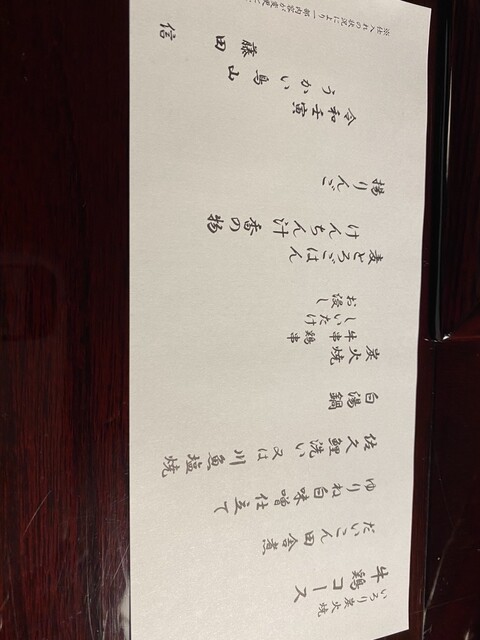 いろり炭火焼
牛鶏コース
だいこん田舎煮
ゆりね白味噌仕立て
佐久鯉洗い 又は 川魚塩焼
白湯鍋
炭火焼
牛串 鶏串
しいたけ
お浸し
麦とろごはん
けんちん汁 香の物
揚りんご
令和壬寅
うかい鳥山
藤田 信
※仕入れの状況により一部内容が変更